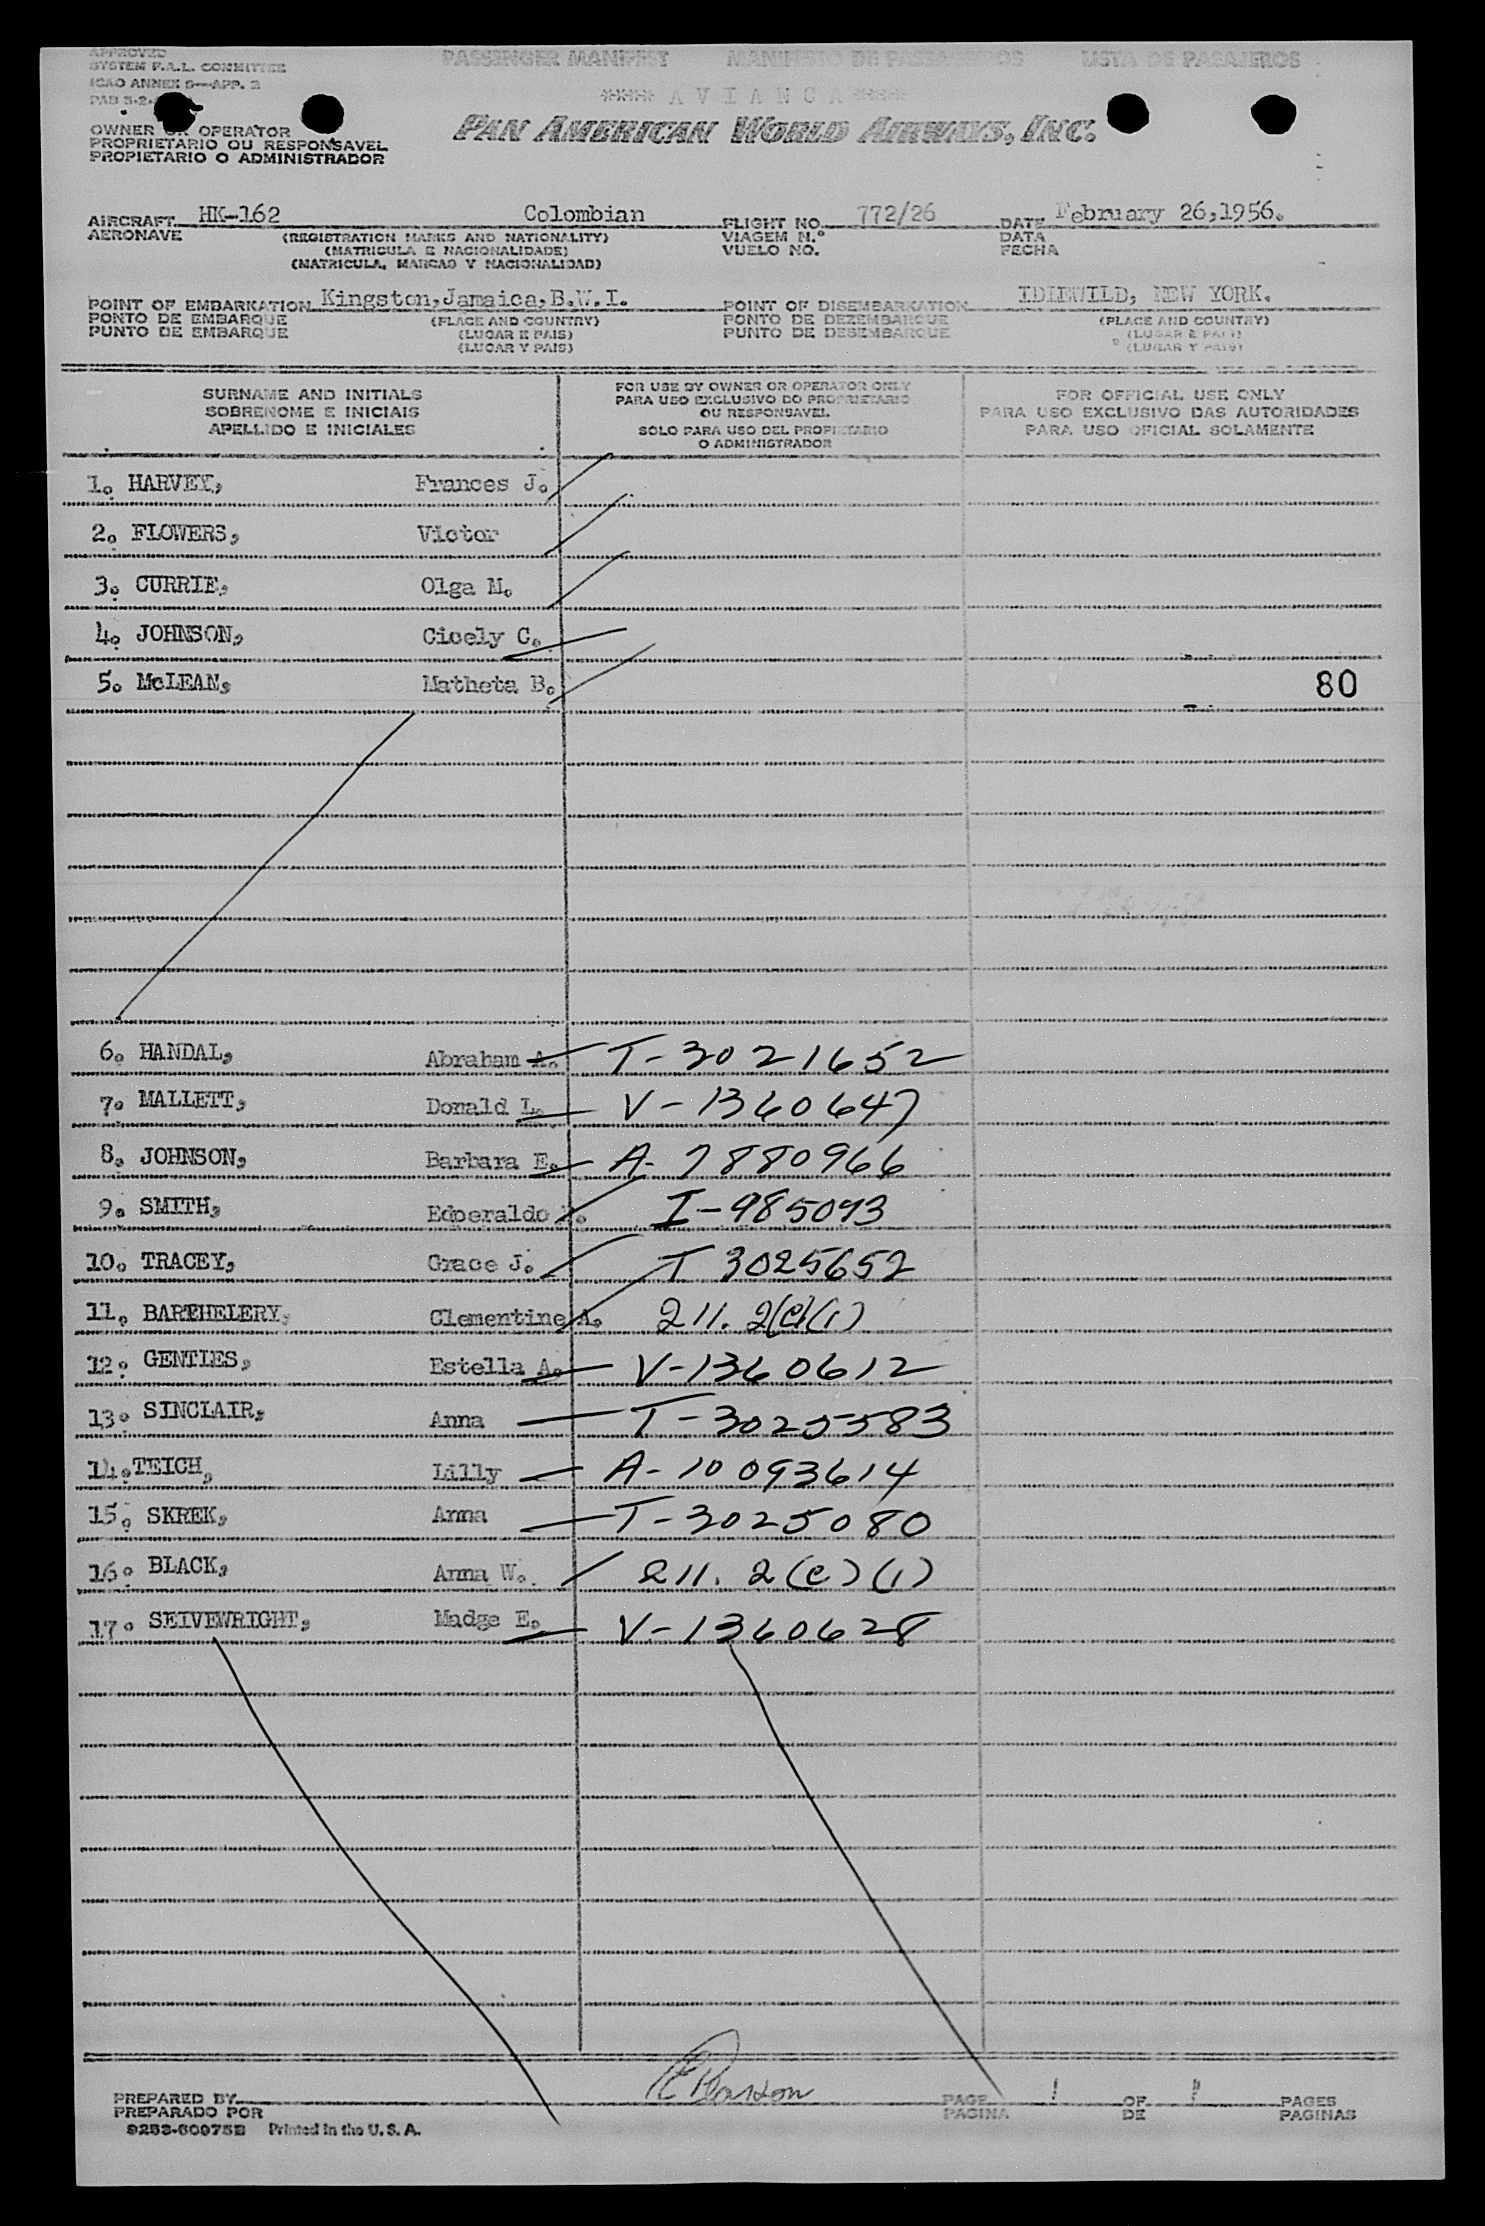 APPROVED
SYSTEM F.A.L. COMMITTEE
ICAO ANNEX 9—APP. 3
PASSENGER MANIFEST MANIFESTO DE PASSAGEIROS LISTA DE PASAJEROS
**** A V I A N C A ****
PAN AMERICAN WORLD AIRWAYS, INC.
OWNER OR OPERATOR
PROPRIETARIO OU RESPONSAVEL
PROPIETARIO O ADMINISTRADOR
AIRCRAFT HK-162 Colombian FLIGHT NO. 772/26 DATE February 26,1956.
AERONAVE (REGISTRATION MARKS AND NATIONALITY) VIAGEM N.º DATA
(MATRICULA E NACIONALIDADE) VUELO NO. FECHA
(MATRICULA, MARCAS Y NACIONALIDAD)
POINT OF EMBARKATION Kingston,Jamaica,B.W.I. POINT OF DISEMBARKATION IDLEWILD, NEW YORK.
PONTO DE EMBARQUE (PLACE AND COUNTRY) PONTO DE DEZEMBARQUE (PLACE AND COUNTRY)
PUNTO DE EMBARQUE (LUGAR E PAIS) PUNTO DE DESEMBARQUE (LUGAR E PAIS)
(LUGAR Y PAIS) (LUGAR Y PAIS)
SURNAME AND INITIALS
SOBRENOME E INICIAIS
APELLIDO E INICIALES
FOR USE BY OWNER OR OPERATOR ONLY
PARA USO EXCLUSIVO DO PROPRIETARIO
OU RESPONSAVEL
SOLO PARA USO DEL PROPIETARIO
O ADMINISTRADOR
FOR OFFICIAL USE ONLY
PARA USO EXCLUSIVO DAS AUTORIDADES
PARA USO OFICIAL SOLAMENTE
1. HARVEY, Frances J.
2. FLOWERS, Victor
3. CURRIE, Olga M.
4. JOHNSON, Cicely C.
5. McLEAN, Matheta B. 80
6. HANDAL, Abraham A. T-3021652
7. MALLETT, Donald L. V-1360647
8. JOHNSON, Barbara E. A-7880966
9. SMITH, I-985093
10. TRACEY, Grace J. T 3025652
11. BARTHELERY, Clementine A. 211.2(e)(1)
12. GENTLES, Estella A. V-1360612
13. SINCLAIR, Anna T-3025583
14. TEICH, Lilly A-10093614
15. SKREK, Anna T-3025080
16. BLACK, Anna W. 211.2(e)(1)
17. SEIVEWRIGHT, Madge E. V-1360628
PREPARED BY PAGE 1 OF 1 PAGES
PREPARADO POR PAGINA DE PAGINAS
9253-60975B Printed in the U.S.A.